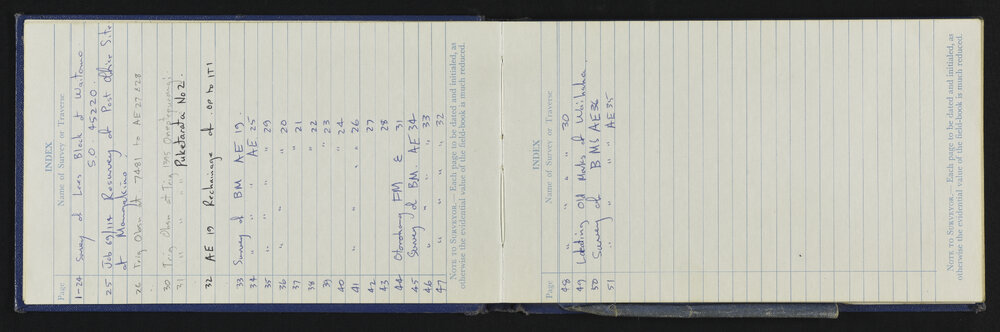 INDEX
Page Name of Survey or Traverse
1-24 Survey of Lees Block at Waitomo
S.O. 45220.
25 Job 69/114 Resurvey of Post Office Site
at Mangakino
26 Trig Obsn at 7481 to AE27 & 28
30 Trig Obsn at Trig 1395
31 " " " Puketarata No 2.
32 AE 19 Rechainage of OP to IT1
33 Survey of BM AE 19.
34 " " AE 25
35 " 29
36 " 20
37 " 21
38 " 22
39 " 23
40 " 24
41 " 26
42 " 27
43 " 28
44 Otorohanga FM & 31
45 Survey of BM. AE 34
46 " " 33
47 " " 32
NOTE TO SURVEYOR.—Each page to be dated and initialed, as
otherwise the evidential value of the field-book is much reduced.
INDEX
Page Name of Survey or Traverse
48 " " " 30
49 Locating Old Marks at Waihaha.
50 Survey of BMs AE36
51 " " AE35
NOTE TO SURVEYOR.—Each page to be dated and initialed, as
otherwise the evidential value of the field-book is much reduced.